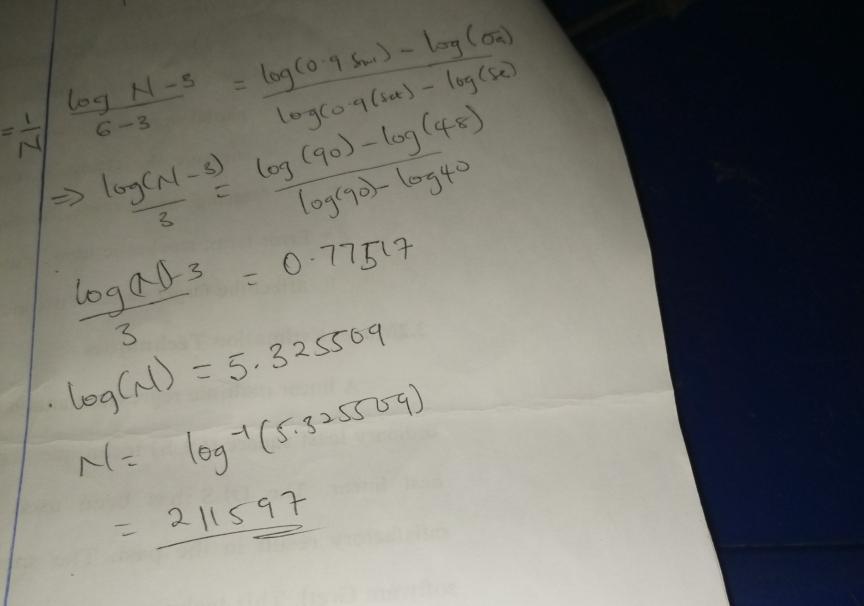 = 1/N log N - 3 / 6 - 3 = log(0.9 Sut) - log(σa) / log(0.9(Sut) - log(Se)
=> log(N - 3) / 3 = log(90) - log(48) / log(90) - log40
log(N) - 3 / 3 = 0.77517
log(N) = 5.325509
N = log⁻¹(5.325509)
= 211597